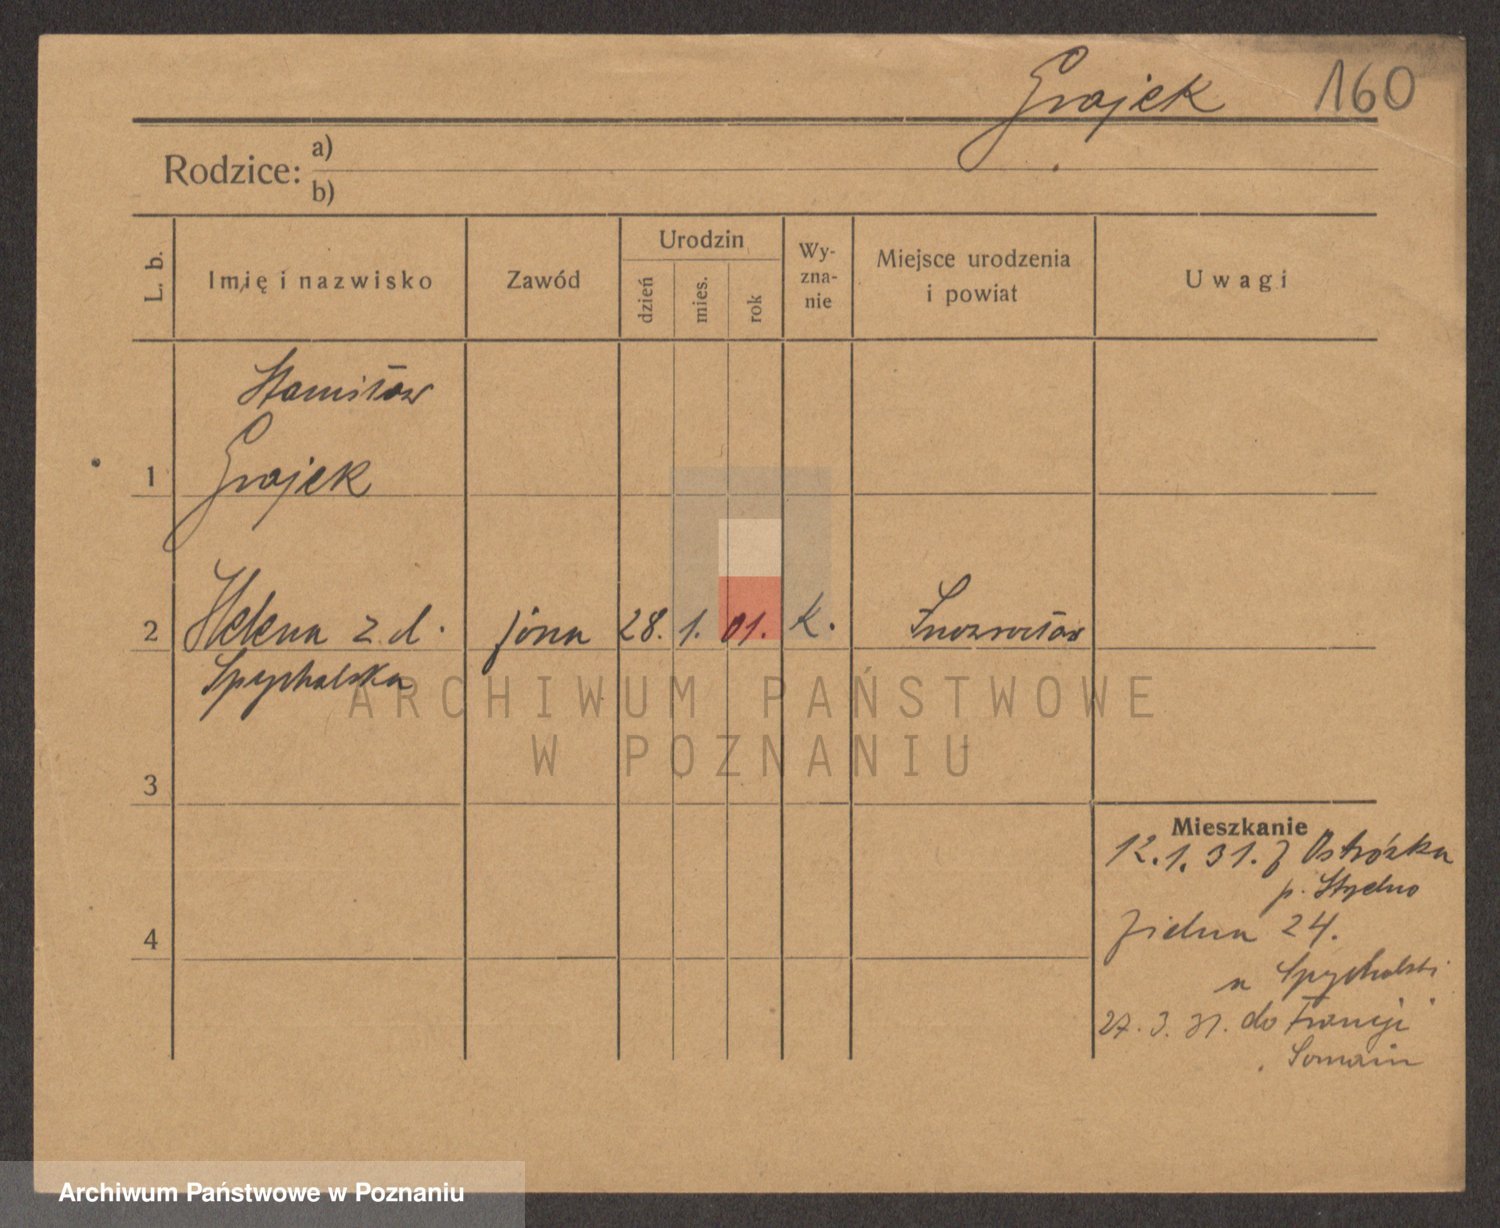 Grajek 160
Rodzice: a)
b)
L. b.
Imię i nazwisko
Zawód
Urodzin
dzień
mies.
rok
Wy-
zna-
nie
Miejsce urodzenia
i powiat
Uwagi
Stanisław
1 Grajek
2 Helena z d. żona 28. 1. 01. k. Inowrocław
Spychalska
3
4
Mieszkanie
12.1.31. z Ostrówka
p.
Zielna 24.
u Spychalski
27.3.31. do Francji
Somain
ARCHIWUM PAŃSTWOWE
W POZNANIU
Archiwum Państwowe w Poznaniu